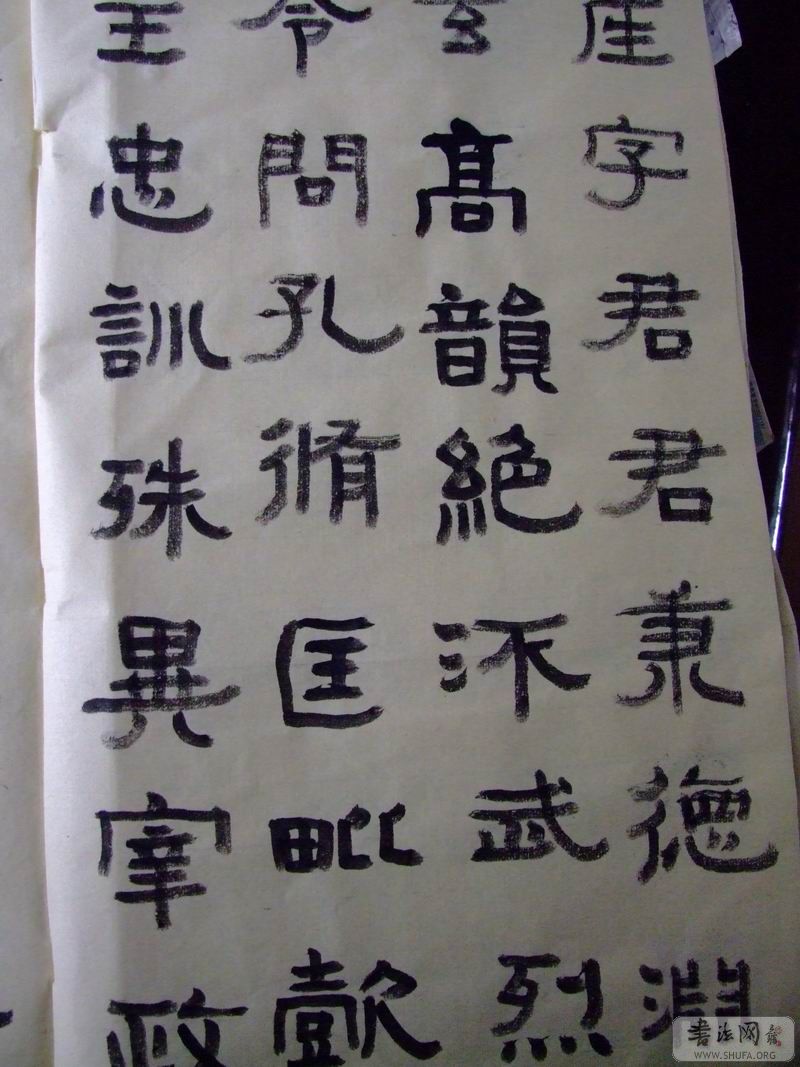 字君君秉德淵
玄髙韻絕泝武烈
令問孔脩匡毗懿
忠訓殊異宰政
書法网
WWW.SHUFA.ORG